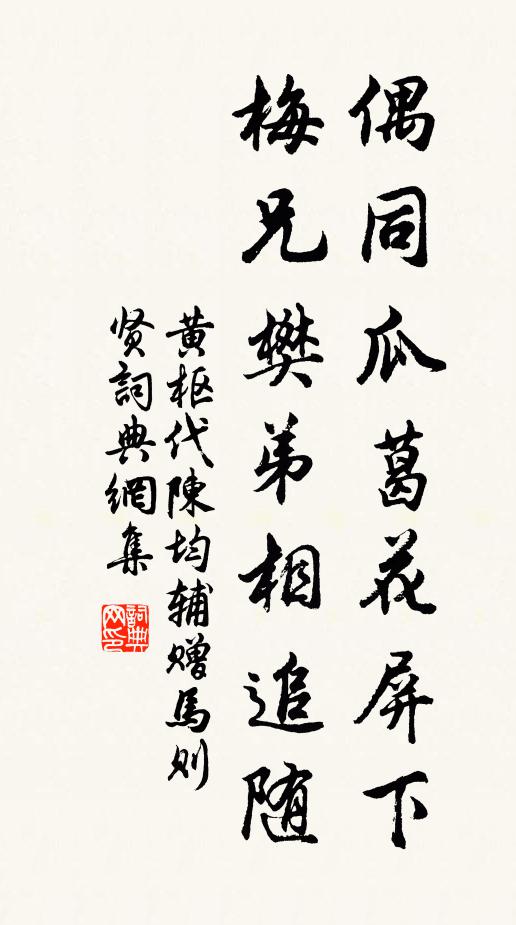 偶同瓜葛花屏下
梅兄樊弟相追随
黄枢代陳均辅赠馬则
贤詞典網集
詞典网印